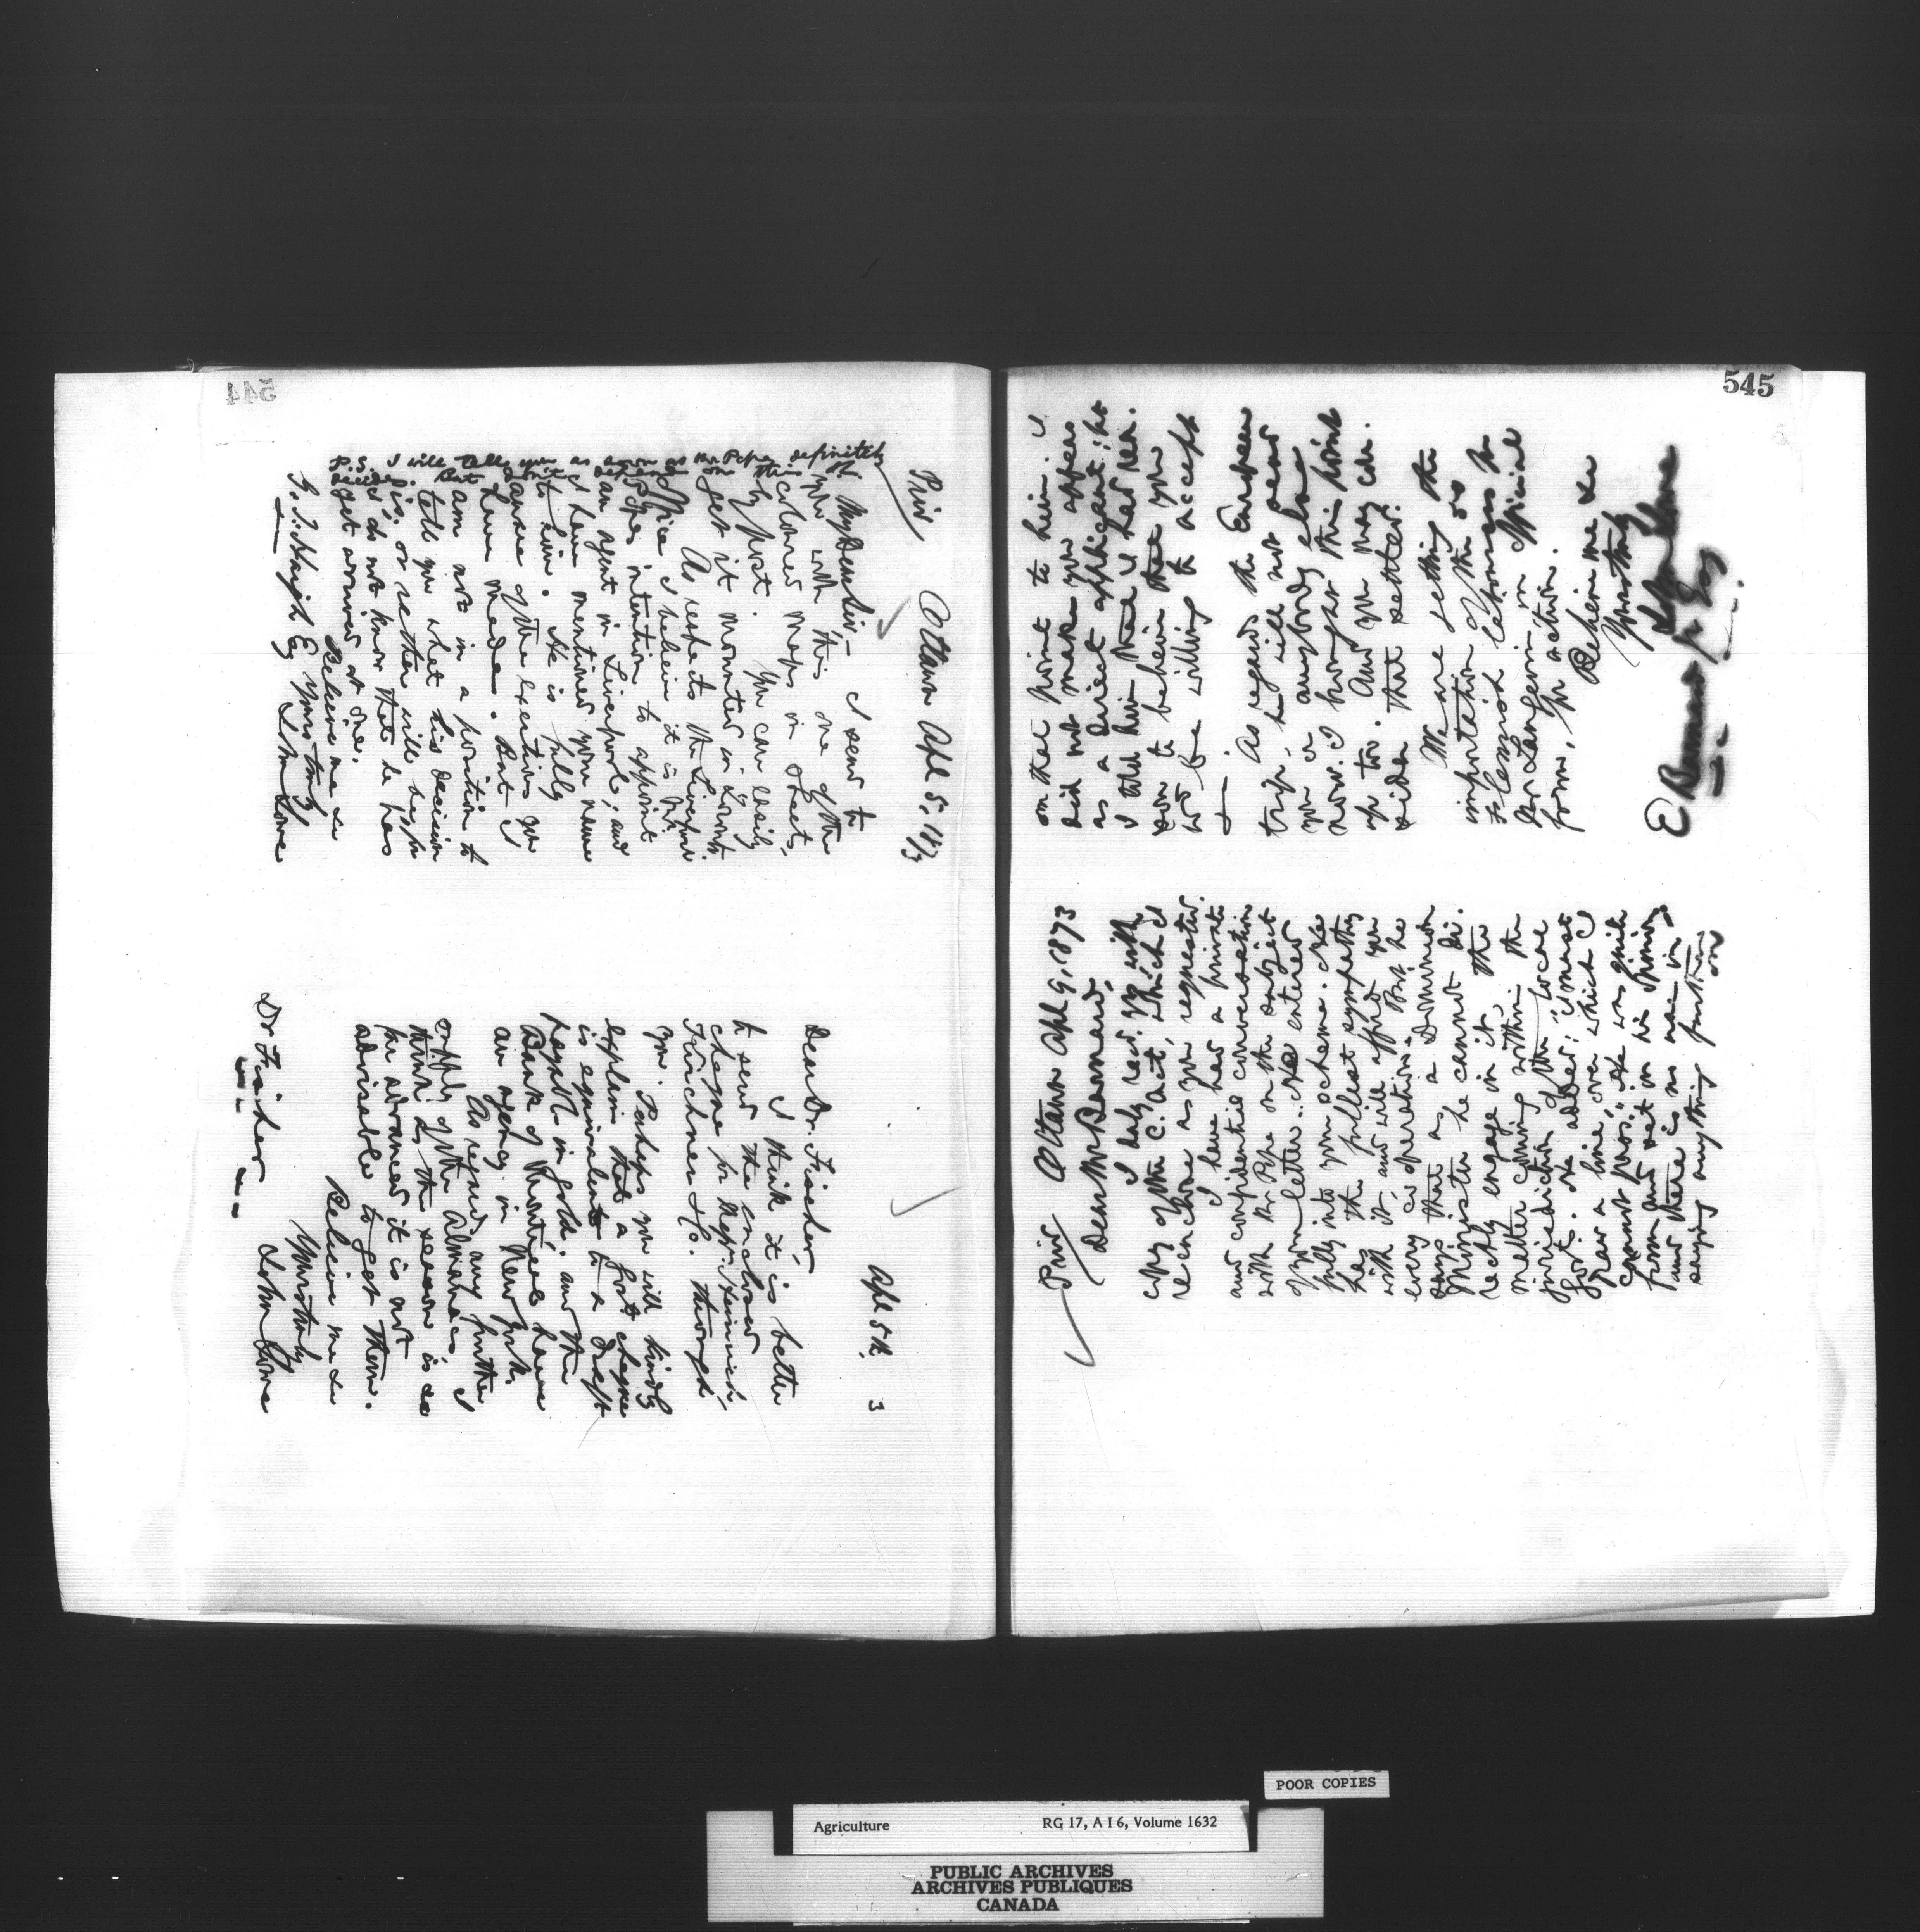 544
Priv Ottawa Apl 5, 1873
My Dear Sir - I send to
you with this one of the
coloured maps in sheets,
by post. You can easily
get it mounted in Toronto.
As respects the Liverpool
office I believe it is Mr.
Pope's intention to appoint
an agent in Liverpool; and
I have mentioned your name
to him. He is fully
aware of the exertions you
have made. But I
am not in a position to
tell you what his decision
is, or rather will be, for
I do not know that he has
yet arrived at one.
Believe me du
Yours truly
John Lowe
G. T. Haigh Esq
P.S. I will tell you as soon as Mr Pope definitely
decides. But don't depend on this
Apl 5th, 3
Dear Dr. Fischer,
I think it is better
to send the enclosed
cheque for Kirchner & Co. through
you. Perhaps you will kindly
explain that a govt cheque
is equivalent to a draft
payable in gold, and the
Bank of Montreal have
an agency in New York.
As regards any further
supply of the Almanacs, I
think as the season is so
far advanced it is not
advisable to get them.
Believe me du
Yours truly
John Lowe
Dr Fischer
545
Priv Ottawa Apl 9, 1873
Dear Mr Barnard,
I duly recd. yrs with
copy of the C. act, which I
re enclose as you requested.
I have had a private
and confidential conversation
with Mr Pope on the subject
of your letter. He entered
fully into your scheme. He
has the fullest sympathy
with it, and will afford you
every co operation. But he
says that as a Dominion
Minister he cannot di-
rectly engage in it. The
matter coming within the
jurisdiction of the local
govt. He added: "I must
draw a line, over which I
cannot pass." He was quite
firm and set in his opinion
and there is no use in
saying anything further
on
on that point to him. I
did not make you appear
as a direct applicant; but
I told him that I had rea-
son to believe that you
wd be willing to accept
it.
As regards the European
trip, he will not send
you or anybody else
now. I brought this point
up too. And you may con-
sider that settled.
We are setting the
importation of the
to
Mr Langevin in official
form, for action.
Believe me du
Yours truly
John Lowe
E Barnard jr Esq
POOR COPIES
Agriculture RG 17, A I 6, Volume 1632
PUBLIC ARCHIVES
ARCHIVES PUBLIQUES
CANADA